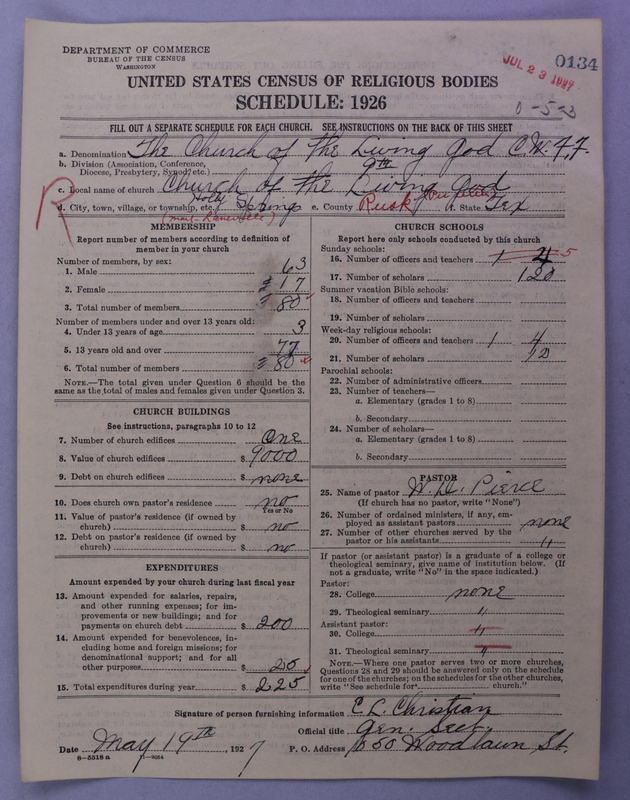 DEPARTMENT OF COMMERCE
BUREAU OF THE CENSUS
WASHINGTON
JUL 23 1927
0134
UNITED STATES CENSUS OF RELIGIOUS BODIES
SCHEDULE: 1926
FILL OUT A SEPARATE SCHEDULE FOR EACH CHURCH. SEE INSTRUCTIONS ON THE BACK OF THIS SHEET
a. Denomination The Church of the Living God C.W.F.F.
b. Division (Association, Conference, Diocese, Presbytery, Synod, etc.) 9th
c. Local name of church Church of the Living God
d. City, town, village, or township, etc. Holly Springs e. County Rusk f. State Tex
MEMBERSHIP
Report number of members according to definition of member in your church
Number of members, by sex:
1. Male 63
2. Female 17
3. Total number of members 80
Number of members under and over 13 years old:
4. Under 13 years of age 3
5. 13 years old and over 77
6. Total number of members 80
NOTE.—The total given under Question 6 should be the same as the total of males and females given under Question 3.
CHURCH BUILDINGS
See instructions, paragraphs 10 to 12
7. Number of church edifices One
8. Value of church edifices $ 9000
9. Debt on church edifices $ none
10. Does church own pastor's residence no
Yes or No
11. Value of pastor's residence (if owned by church) $ no
12. Debt on pastor's residence (if owned by church) $ no
EXPENDITURES
Amount expended by your church during last fiscal year
13. Amount expended for salaries, repairs, and other running expenses; for improvements or new buildings; and for payments on church debt $ 200
14. Amount expended for benevolences, including home and foreign missions; for denominational support; and for all other purposes $ 25
15. Total expenditures during year $ 225
CHURCH SCHOOLS
Report here only schools conducted by this church
Sunday schools:
16. Number of officers and teachers 1 4 5
17. Number of scholars 120
Summer vacation Bible schools:
18. Number of officers and teachers
19. Number of scholars
Week-day religious schools:
20. Number of officers and teachers 1 4
21. Number of scholars 12
Parochial schools:
22. Number of administrative officers
23. Number of teachers—
a. Elementary (grades 1 to 8)
b. Secondary
24. Number of scholars—
a. Elementary (grades 1 to 8)
b. Secondary
PASTOR
25. Name of pastor W. D. Pierce
(If church has no pastor, write "None")
26. Number of ordained ministers, if any, employed as assistant pastors none
27. Number of other churches served by the pastor or his assistants "
If pastor (or assistant pastor) is a graduate of a college or theological seminary, give name of institution below. (If not a graduate, write "No" in the space indicated.)
Pastor:
28. College none
29. Theological seminary "
Assistant pastor:
30. College "
31. Theological seminary "
NOTE.—Where one pastor serves two or more churches, Questions 28 and 29 should be answered only on the schedule for one of the churches; on the schedules for the other churches, write "See schedule for church."
Signature of person furnishing information C. L. Christian
Official title Gen. Sect.
Date May 19th, 1927 P. O. Address Woodlawn St.
8—5518 a